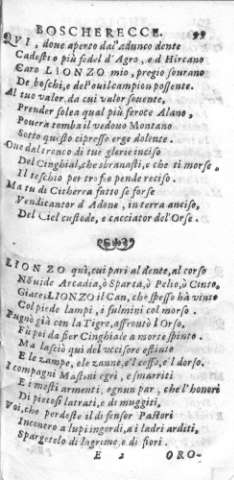 BOSCHERECCE. 99
QVI, doue aperto dal'adunco dente
Cadesti o più fedel d'Agro, e d'Hircano
Caro LIONZO mio, pregio sourano
De boschi, e de l'ouil campion possente.
Al tuo valor, da cui valor souente,
Prender solea qual più feroce Alano,
Pouera tomba il vedouo Montano
Sotto questo cipresso erge dolente.
Oue dal tronco di tue glorie inciso
Del Cinghial, che sbranasti, e che ti morse,
Il teschio per trofeo pende reciso.
Ma tu di Citherea fatto se forse
Vendicantor d'Adone, in terra anciso,
Del Ciel custode, e cacciator del'Orse.
LIONZO quì, cui pari al dente, al corso
Nō vide Arcadia, ò Sparta, ò Pelio, ò Cinto,
Giace, LIONZO il Can, che spesso hà vinto
Col piede i lampi, i fulmini col morso.
Pugnò già con la Tigre, affrontò l'Orso,
Fù poi da fier Cinghiale a morte spinto.
Ma lasciò quì del vccisore estinto
E le zampe, e le zanne, e'l ceffo, e'l dorso.
I compagni Mastini egri, e smarriti
E i mesti armenti, ognun par, che l'honori
Di pietosi latrati, e di muggiti,
Voi, che perdeste il difensor Pastori
Incontro a lupi ingordi, a i ladri arditi,
Spargetelo di lagrime, e di fiori.
E 2 ORO-